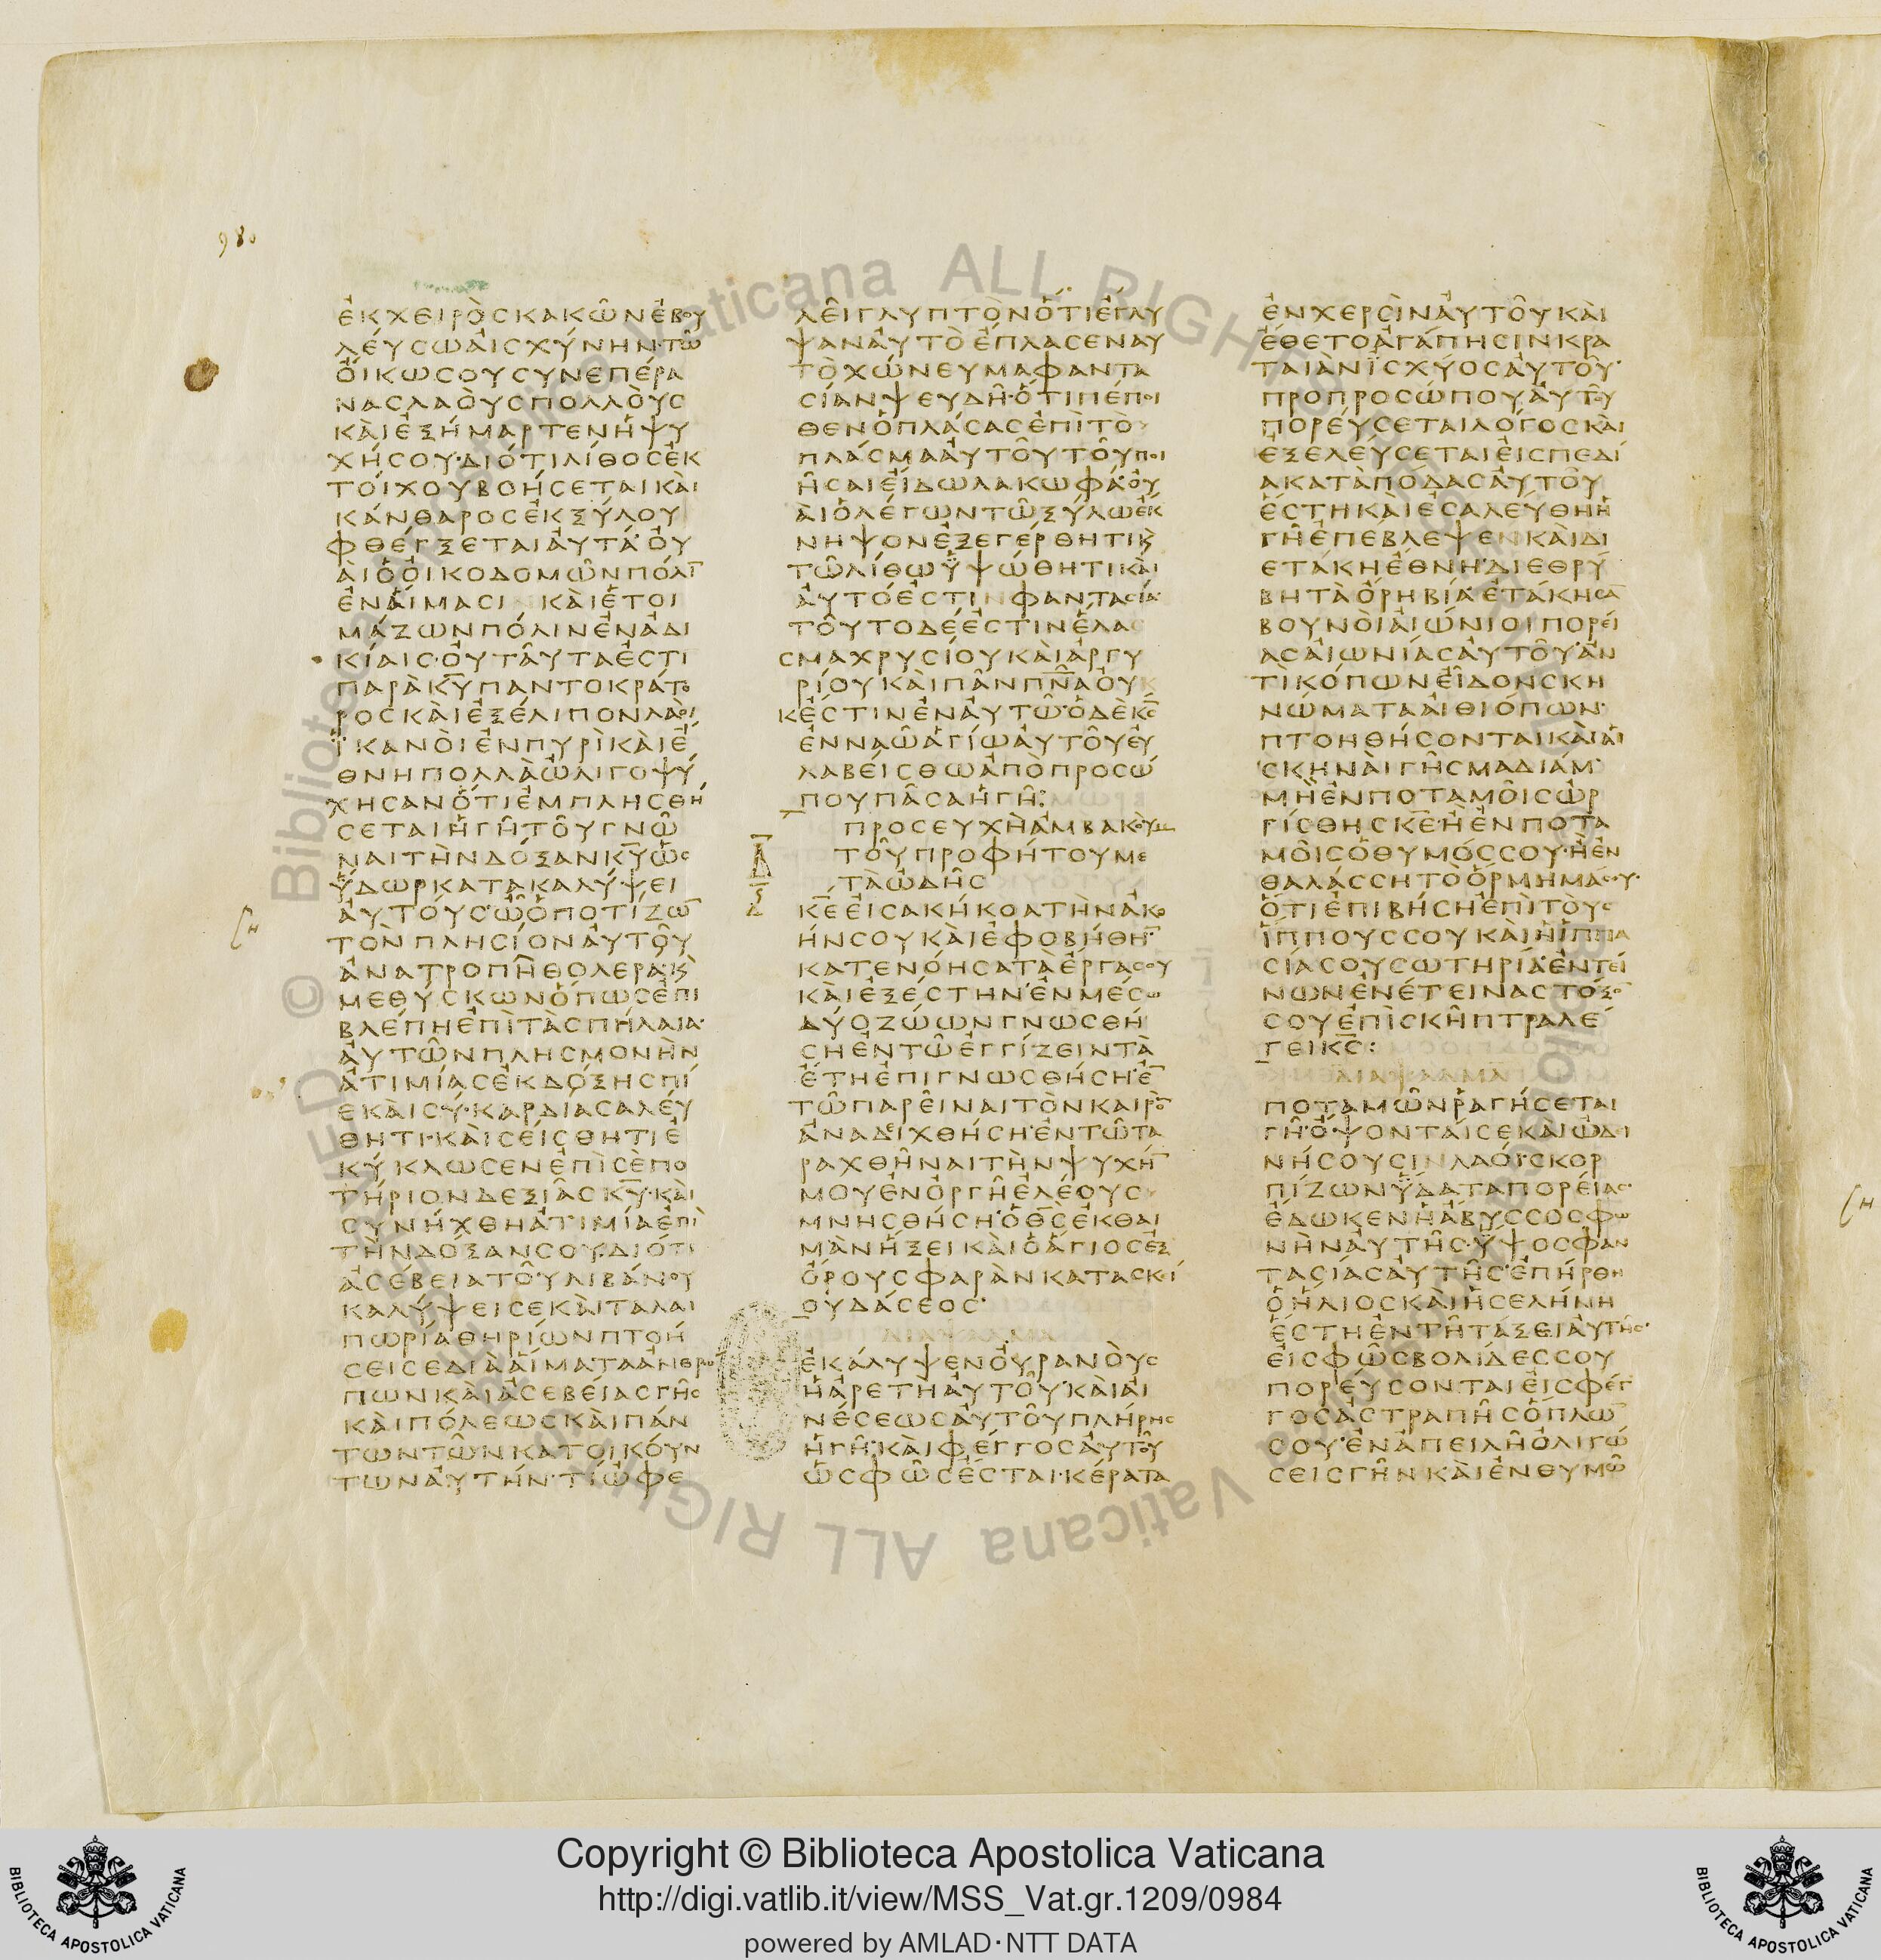 980
ἐκχειρὸςκακῶνἐβου
λεύσωαἰσχύνηντῶ
ὄικωσουσυνεπέρα
ναςλαοὺςπολλοὺς
κὰιἐξήμαρτενἡψυ
χήσου·διότιλίθοςἐκ
τοίχουβοήσεταικὰι
κάνθαροςἐκξύλου
φθέγξεταιἀυτά·ὀυ
ὰιὁὀικοδομῶνπόλῑ
ἐνἅιμασικὰιἑτοι
μάζωνπόλινἐνἀδι
κίαις·ὀυταῦταἐστι
παρὰκ̅υ̅παντοκράτο
ροςκὰιἐξέλιπονλαὸι
ἱκανὸιἐνπυρὶκὰιἔ
θνηπολλὰὠλιγοψύ
χησανὅτιἐμπλησθή
σεταιἡγῆτοῦγνῶ
ναιτὴνδόξανκ̅υ̅ὡς
ὕδωρκατακαλύψει
ἀυτούς·ὦὁποτίζω̅
τὸνπλησίονἀυτοῦ
ἀνατροπῆθολερᾶ·κ
μεθύσκωνὅπωςἐπι
βλέπηἐπὶτὰσπήλαια·
ἀυτῶνπλησμονὴν
ἀτιμίαςἐκδόξηςπί
εκὰισύ·καρδίασαλεύ
θητι·κὰισείσθητιἐ
κύκλωσενἐπὶσὲπο
τήριονδεξιᾶςκ̅υ̅·κὰι
συνήχθηἀτιμίαἐπὶ
τὴνδόξανσου·διότι
ἀσέβειατοῦλιβάνου
καλύψεισεκὰιταλαι
πωρίαθηρίωνπτοή
σεισεδιὰἅιματαἀνθρώ
πωνκὰιἀσεβείαςγῆς
κὰιπόλεωςκὰιπάν
τωντῶνκατοικούν
τωνἀυτήν·τίὠφε
λεῖγλυπτὸνὅτιἔγλυ
ψανἀυτὸἔπλασεναυ
τὸχώνευμαφαντα
σίανψευδῆ·ὅτιπέποι
θενὁπλάσαςἐπὶτὸ
πλάσμαἀυτοῦτοῦποι
ῆσαιἐίδωλακωφά·ὀυ
ὰιὁλέγωντῶξύλωἔκ
νηψονἐξεγέρθητικ
τῶλίθωὑψώθητικὰι
ἀυτόἐστινφαντασία·
τοῦτοδέἐστινἔλα
σμαχρυσίουκὰιἀργυ
ρίουκὰιπᾶνπ̅ν̅αὀυ
κἔστινἐνἀυτῶ·ὁδὲκ̅ς̅
ἐνναῶἁγίωἀυτοῦεὐ
λαβείσθωἀπὸπροσώ
πουπᾶσαἡγῆ:
προσευχὴἀμβακοὺμ
τοῦπροφήτουμε
τὰὠδῆς
κ̅ε̅εἰσακήκοατὴνἀκο
ήνσουκὰιἐφοβήθη̅·
κατενόησατὰἔργασου
κὰιἐξέστην·ἐνμέσω
δύοζώωνγνωσθή
σηἐντῶἐγγίζειντὰ
ἔτηἐπιγνωσθήση·ἐ̅
τῶπαρεῖναιτὸνκαιρὸ̅
ἀναδειχθήση·ἐντῶτα
ραχθῆναιτὴνψυχή̅
μουἐνὀργῆἐλέους
μνησθήση·ὁθ̅ς̅ἐκθαι
μὰνἥξεικὰιὁἅγιοςἐξ
ὄρουςφαρὰνκατασκί
ουδάσεος·
διαψαλμα
ἐκάλυψενὀυρανοὺς
ἡἀρετὴἀυτοῦ·κὰιἀι
νέσεωςἀυτοῦπλήρης
ἡγῆ·κὰιφέγγοςἀυτοῦ
ὡςφῶςἔσται·κέρατα
ἐνχερσὶνἀυτοῦκὰι
ἔθετοἀγάπησινκρα
ταιὰνἰσχύοςἀυτοῦ·
πρὸπροσώπουἀυτοῦ
πορεύσεταιλόγοςκὰι
ἐξελεύσεταιἐισπεδί
ακατὰπόδαςἀυτοῦ
ἔστηκὰιἐσαλεύθηἡ
γῆἐπέβλεψενκὰιδι
ετάκηἔθνη·διεθρύ
βητὰὄρηβία·ἐτάκησα̅
βουνὸιἀιώνιοιπορεί
ασἀιωνίασἀυτοῦ·ἀν
τὶκόπωνεἶδονσκη
νώματαἀιθιόπων·
πτοηθήσονταικὰιἁι
σκηνὰιγῆςμαδιάμ·
μὴἐνποταμοῖςὠρ
γίσθηςκ̅ε̅·ἢἐνποτα
μοῖςὁθυμόςσου·ἢἐν
θαλάσσητὸὅρμημάσου·
ὅτιἐπιβήσηἐπὶτοὺς
ἵππουςσουκὰιἡἱππα
σίασουσωτηρία·ἐντεί
νωνἐνέτειναςτόξο̅
σουἐπὶσκῆπτραλέ
γεικ̅ς̅:
διαψαλμα
ποταμῶνῥαγήσεται
γῆ·ὄψονταίσεκαιὠδι
νήσουσινλαόι·σκορ
πίζωνὕδαταπορείας·
ἔδωκενἡἄβυσσοςφω
νὴνἀυτῆς·ὕψοςφαν
τασίασἀυτῆς·ἐπήρθη
ὁἥλιοςκὰιἡσελήνη
ἔστηἐντῆτάξειἀυτῆς·
εἰςφῶςβολίδεςσου
πορεύσονταιἐισφέγ
γοςἀστραπῆςὅπλω̅
σου·ἐνἀπειλῆὀλιγώ
σειςγῆνκὰιἐνθυμῶ
Copyright © Biblioteca Apostolica Vaticana
http://digi.vatlib.it/view/MSS_Vat.gr.1209/0984
powered by AMLAD·NTT DATA
BIBLIOTECA APOSTOLICA VATICANA
BIBLIOTECA APOSTOLICA VATICANA